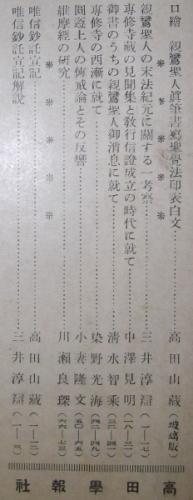 口繪 親鸞聖人眞筆書寫聖覺法印表白文……高田山藏(玻璃版)
親鸞聖人の末法紀元に關する一考察……三井淳辯(一—七)
專修寺藏の見聞集と敎行信證成立の時代に就て……中澤見明(八—三一)
御書のうちの親鸞聖人御消息に就て……淸水智乘
專修寺の西漸に就て……染野光海
圓遵上人の傳戒論とその反響……小妻隆文
維摩經の硏究……川瀨良琛
唯信鈔託宣記……高田山藏
唯信鈔託宣記解說……三井淳辯
高田學報社